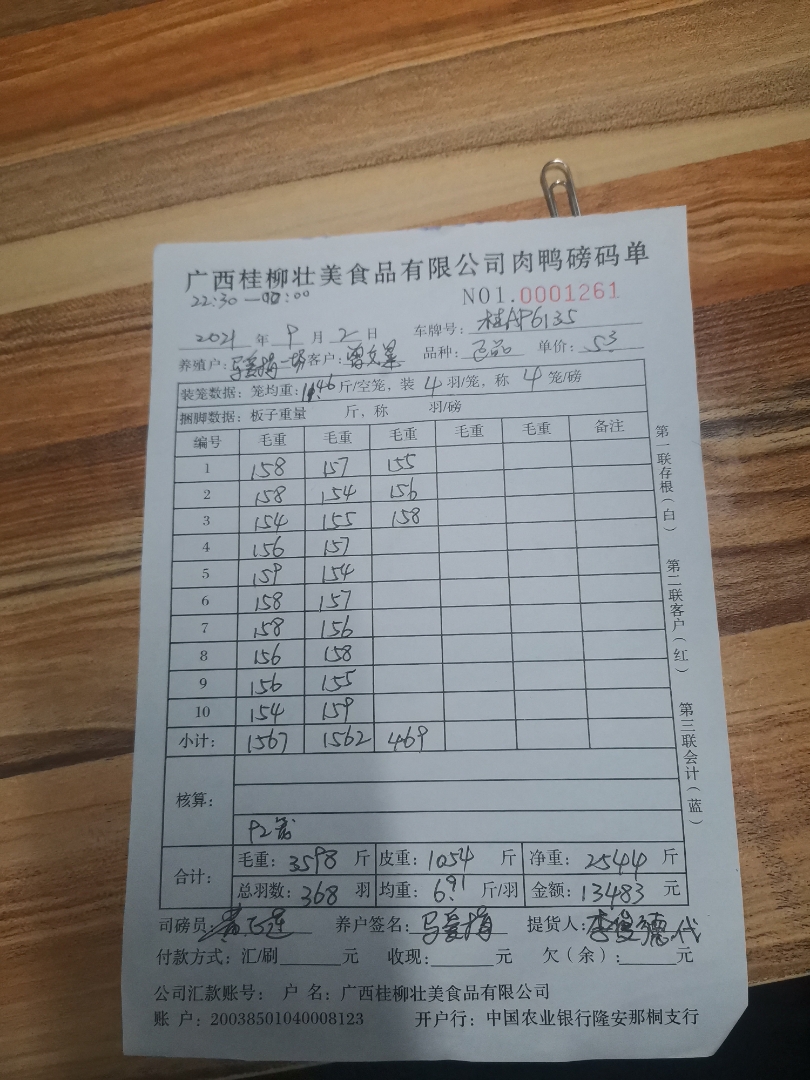 广西桂柳壮美食品有限公司肉鸭磅码单
22:30—00:00
NO1.0001261
2021年9月2日 车牌号：桂AP6135
养殖户：马爱梅一场 客户： 品种： 单价：5.3
装笼数据：笼均重：11.46斤/空笼，装4羽/笼，称4笼/磅
捆脚数据：板子重量 斤，称 羽/磅
编号 毛重 毛重 毛重 毛重 毛重 备注
1 158 157 155
2 158 154 156
3 154 155 158
4 156 157
5 159 154
6 158 157
7 158 156
8 156 158
9 156 155
10 154 159
小计： 1567 1562 469
核算：
92笼
合计： 毛重：3598斤 皮重：1054斤 净重：2544斤
总羽数：368羽 均重：6.91斤/羽 金额：13483元
司磅员： 养户签名：马爱梅 提货人：李俊德代
付款方式：汇/刷 元 收现： 元 欠（余）： 元
公司汇款账号： 户 名：广西桂柳壮美食品有限公司
账 户：20038501040008123 开户行：中国农业银行隆安那桐支行
第一联存根（白）
第二联客户（红）
第三联会计（蓝）